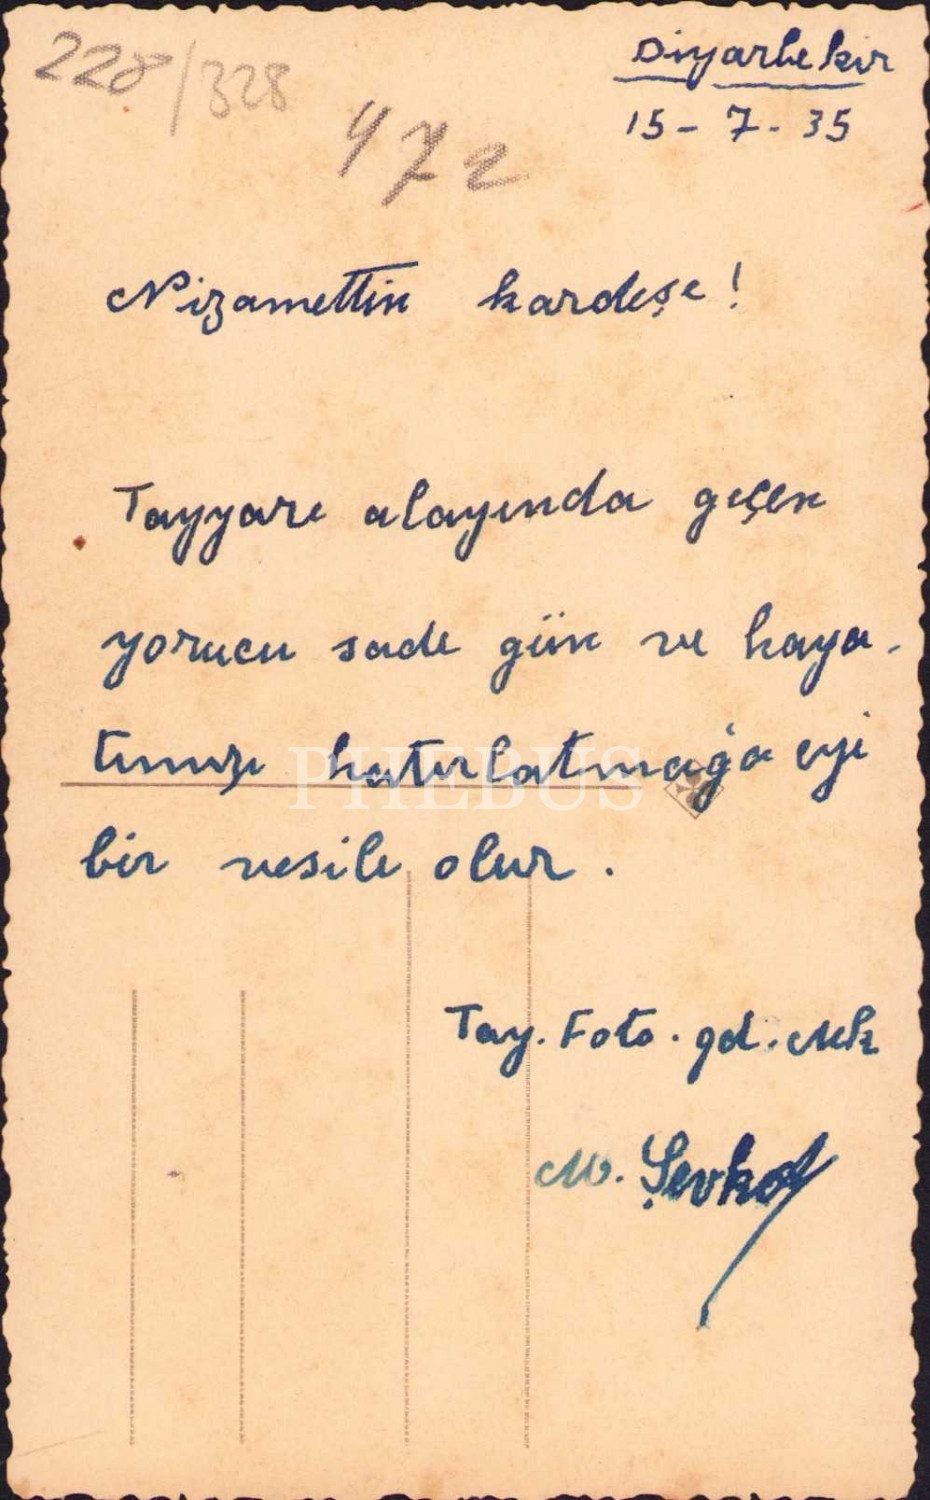 228/328
472
Diyarbekir
15-7.35
Nizamettin kardeşe!
Tayyare alayında geçen
yorucu sade gün ve haya-
tımızı hatırlatmağa eyi
bir vesile olur.
PHEBUS
Tay. Foto. gd. Mk
M. Şevket